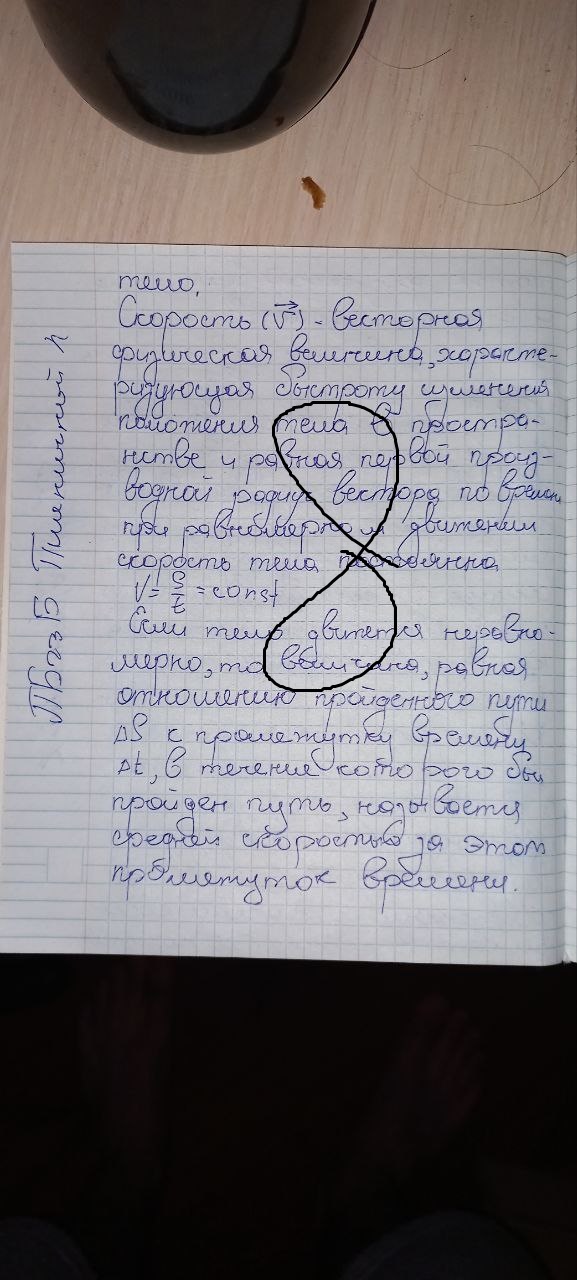 тело.
Скорость (V⃗) - векторная
физическая величина, характе-
ризующая быстроту изменения
положения тела в простра-
нстве и равная первой произ-
водной радиус вектора по времени
при равномерном движении
скорость тела постоянна
V = S/t = const
Если тело движется неравно-
мерно, то величина, равная
отношению пройденного пути
ΔS к промежутку времени
Δt, в течение которого был
пройден путь, называется
средней скоростью за этот
промежуток времени.